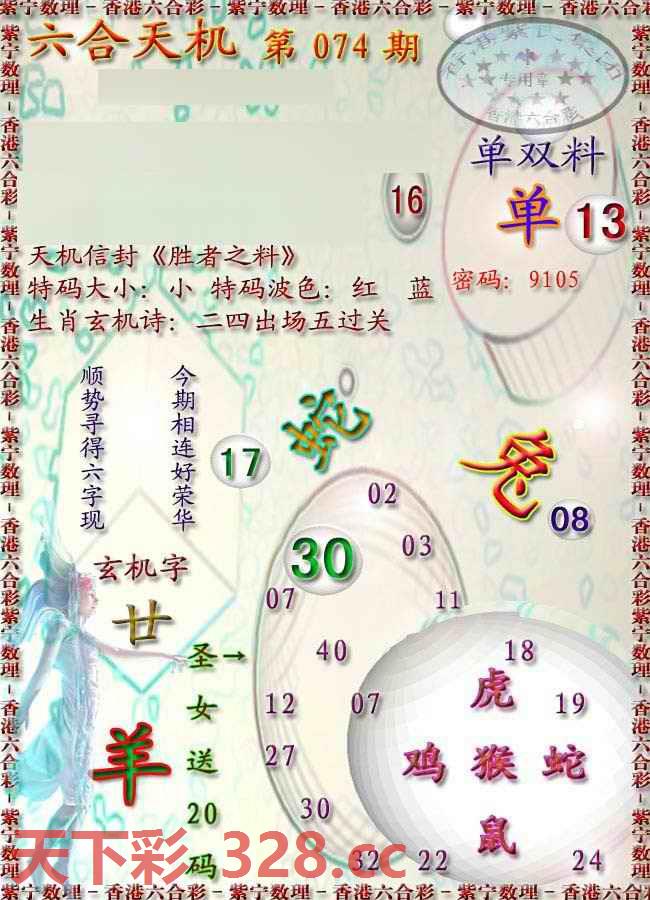 紫宁数理－香港六合彩－紫宁数理－香港六合彩－紫宁数理－香港六合彩－紫宁数理
六合天机 第 074 期
专用章
香港六合彩
单双料
单 13
16
密码：9105
天机信封《胜者之料》
特码大小：小 特码波色：红 蓝
生肖玄机诗：二四出场五过关
今期相连好荣华
顺势寻得六字现
17
蛇
兔
08
玄机字
廿
羊
圣→
女
送
20
码
02
30
03
07
11
40
18
12
07
19
27
30
32
22
24
虎
鸡 猴 蛇
鼠
天下彩.328.cc
紫宁数理－香港六合彩－紫宁数理－香港六合彩－紫宁数理－香港六合彩－紫宁数理